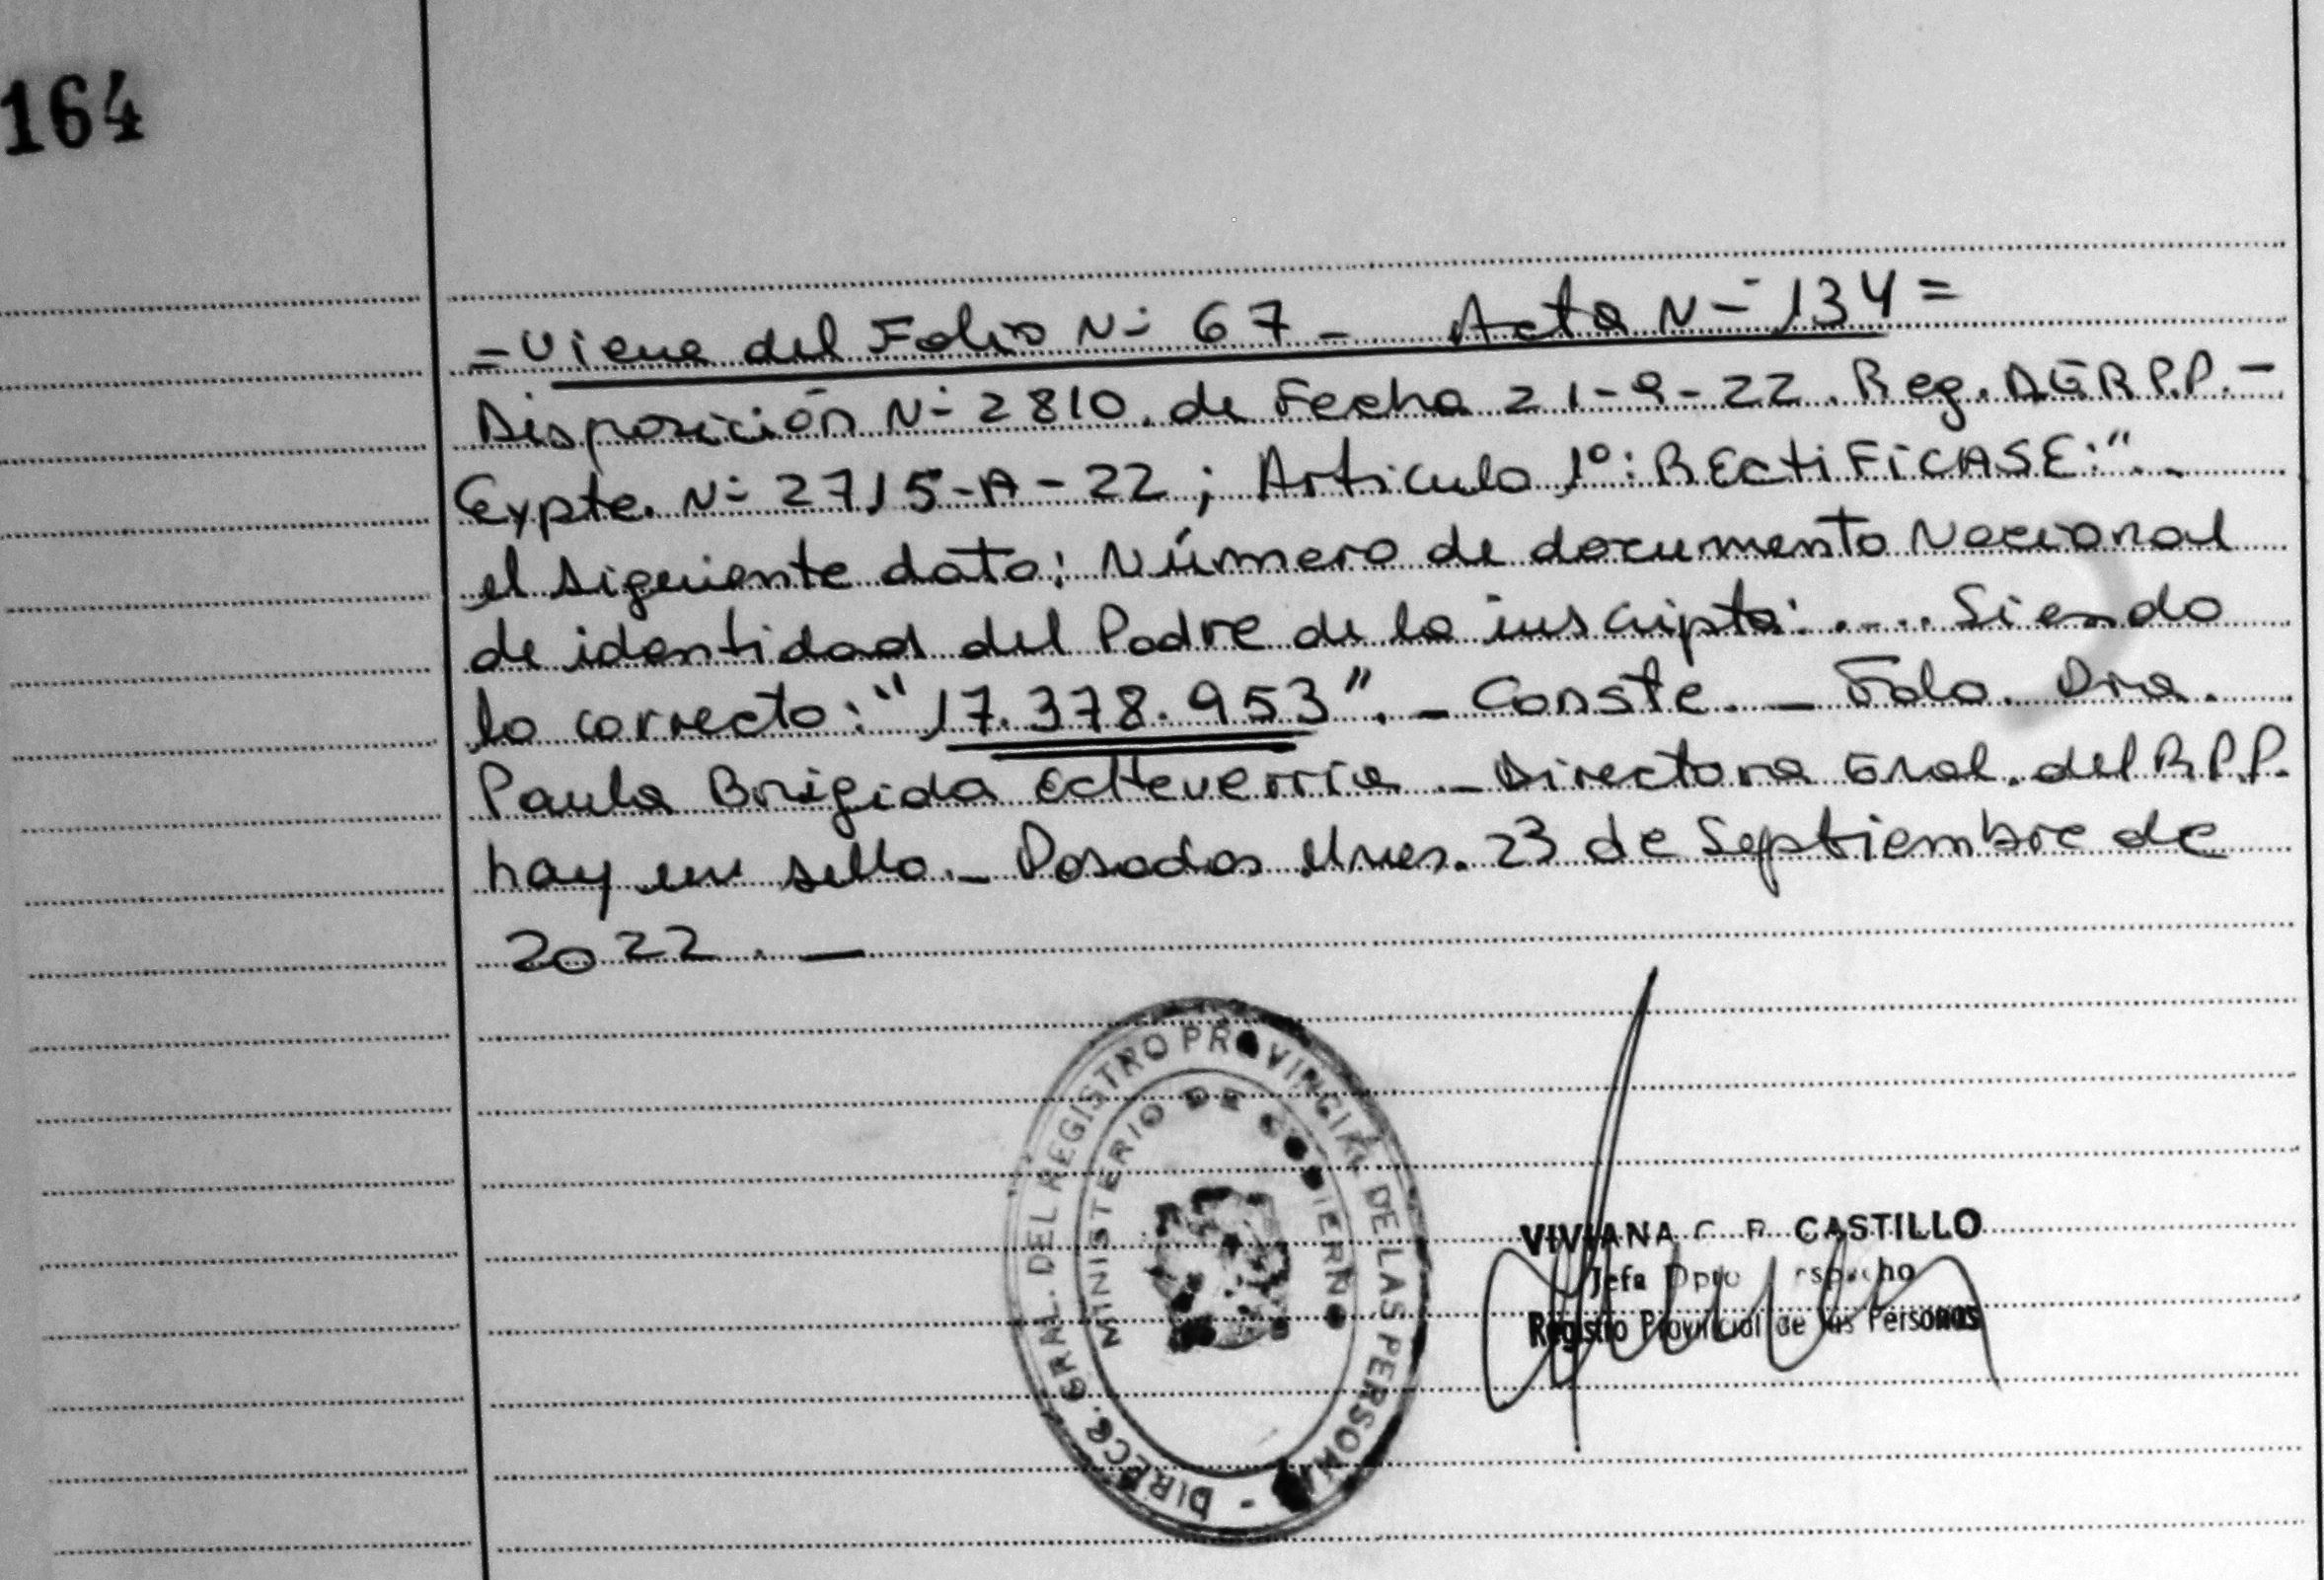 164
- Viene del Folio N° 67 - Acta N° 134 =
Disposición N° 2810. de Fecha 21-9-22. Reg. DGRPP.-
Expte. N° 2715-A-22; Articulo 1°: RECtiFiCASE:"..
el siguiente dato: Número de documento Nacional
de identidad del Padre de la inscripta: .... Siendo
lo correcto: "17.378.953". - Conste. - Fdo. Dra.
Paula Brigida Echeverria - Directora Gral. del R.P.P.
hay un sello. - Posadas Mnes. 23 de Septiembre de
2022. -
DIRECC. GRAL. DEL REGISTRO PROVINCIAL DE LAS PERSONAS -
MINISTERIO DE GOBIERNO
VIVIANA CASTILLO
Jefa Dpto
Registro Provincial de las Personas